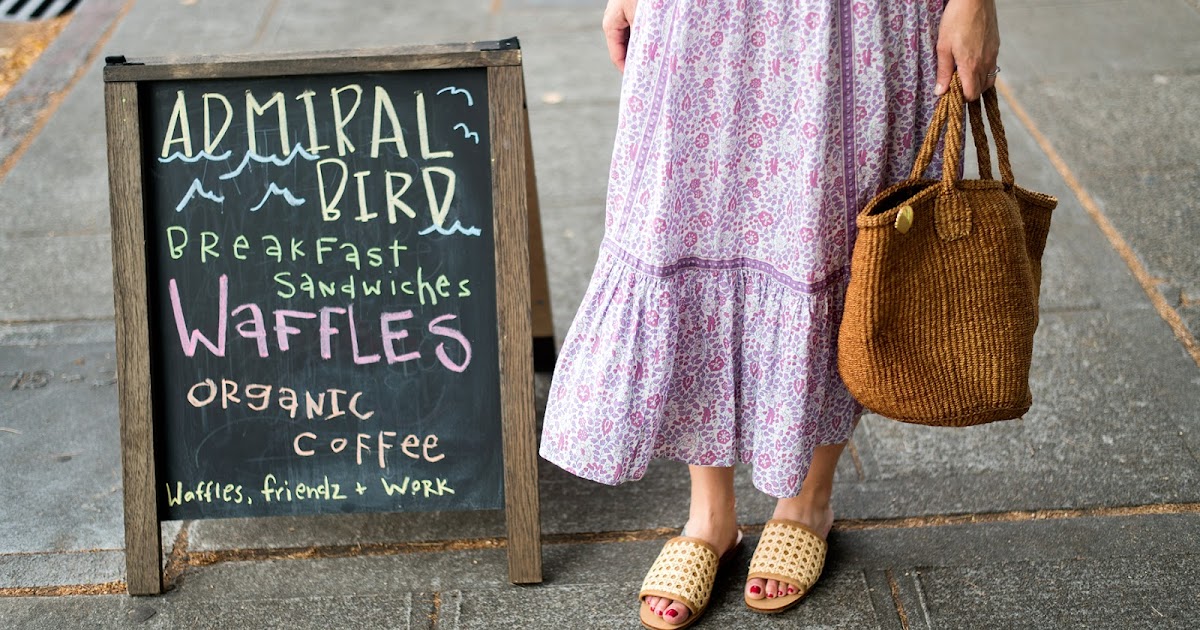 ADMIRAL
BIRD
BREAKFast
Sandwiches
WaFFLES
ORganIC
COFFee
Waffles, friendz + WORK